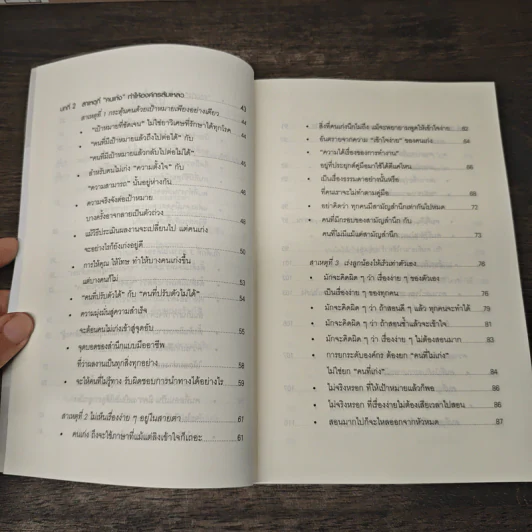 บทที่ 2 สาเหตุที่ "คนเก่ง" ทำให้องค์กรล้มเหลว 43
สาเหตุที่ 1 กระตุ้นคนด้วยเป้าหมายเพียงอย่างเดียว 44
• "เป้าหมายที่ชัดเจน" ไม่ใช่ยาวิเศษที่รักษาได้ทุกโรค 44
• "คนที่มีเป้าหมายแล้วถึงไปต่อได้" กับ
"คนที่มีเป้าหมายแล้วกลับไปต่อไม่ได้"
• สำหรับคนไม่เก่ง "ความตั้งใจ" กับ
"ความสามารถ" นั้นอยู่ห่างกัน
• ความจริงจังต่อเป้าหมาย
บางครั้งอาจกลายเป็นตัวถ่วง
• แม้วิธีประเมินผลงานจะเปลี่ยนไป แต่คนเก่ง
จะอย่างไรก็ยังเก่งอยู่ดี
• การให้คุณ ให้โทษ ทำให้บางคนเก่งขึ้น
แต่บางคนก็ไม่
• "คนที่ปรับตัวได้" กับ "คนที่ปรับตัวไม่ได้" 54
• ความมุ่งมั่นสู่ความสำเร็จ
จะต้อนคนไม่เก่งเข้าสู่จุดอับ 55
• จุดบอดของสำนึกแบบมืออาชีพ
ที่ว่าผลงานเป็นทุกสิ่งทุกอย่าง 58
• จะให้คนที่ไม่รู้ทาง รับผิดชอบการนำทางได้อย่างไร 59
สาเหตุที่ 2 ไม่เห็นเรื่องง่าย ๆ อยู่ในสายตา 61
• คนเก่ง ถึงจะใช้ภาษาที่แม้แต่ลิงเข้าใจก็เถอะ 61
• สิ่งที่คนเก่งนึกไม่ถึง แม้จะพยายามพูดให้เข้าใจง่าย 63
• อันตรายจากความ "เข้าใจง่าย" ของคนเก่ง 64
• "ความได้เรื่องของการทำงาน"
อยู่ที่ประยุกต์คู่มือมาใช้ได้ดีแค่ไหน 66
• เป็นเรื่องธรรมดาอย่างนั้นหรือ
ที่คนเราจะไม่ทำตามคู่มือ 68
• อย่าคิดว่า ทุกคนมีสามัญสำนึกเท่ากันไปหมด 72
• คนที่มีกรอบของสามัญสำนึก กับ
คนที่ไม่มีแม้แต่สามัญสำนึก 73
สาเหตุที่ 3 เร่งลูกน้องให้เร็วเท่าตัวเอง 76
• มักจะคิดผิด ๆ ว่า เรื่องง่าย ๆ ของตัวเอง
เป็นเรื่องง่าย ๆ ของทุกคน 76
• มักจะคิดผิด ๆ ว่า ถ้าสอนดี ๆ แล้ว ทุกคนจะทำได้ 79
• มักจะคิดผิด ๆ ว่า ถ้าสอนซ้ำแล้วจะเข้าใจ 81
• มักจะคิดผิด ๆ ว่า เรื่องง่าย ๆ ไม่ต้องสอนมาก 83
• การยกระดับองค์กร ต้องยก "คนที่ไม่เก่ง"
ไม่ใช่ยก "คนที่เก่ง" 84
• ไม่จริงหรอก ที่ให้เป้าหมายแล้วก็พอ 85
• ไม่จริงหรอก ที่เรื่องง่ายไม่ต้องเสียเวลาไปสอน
• สอนมากไปก็จะไหลออกจากหัวหมด 87